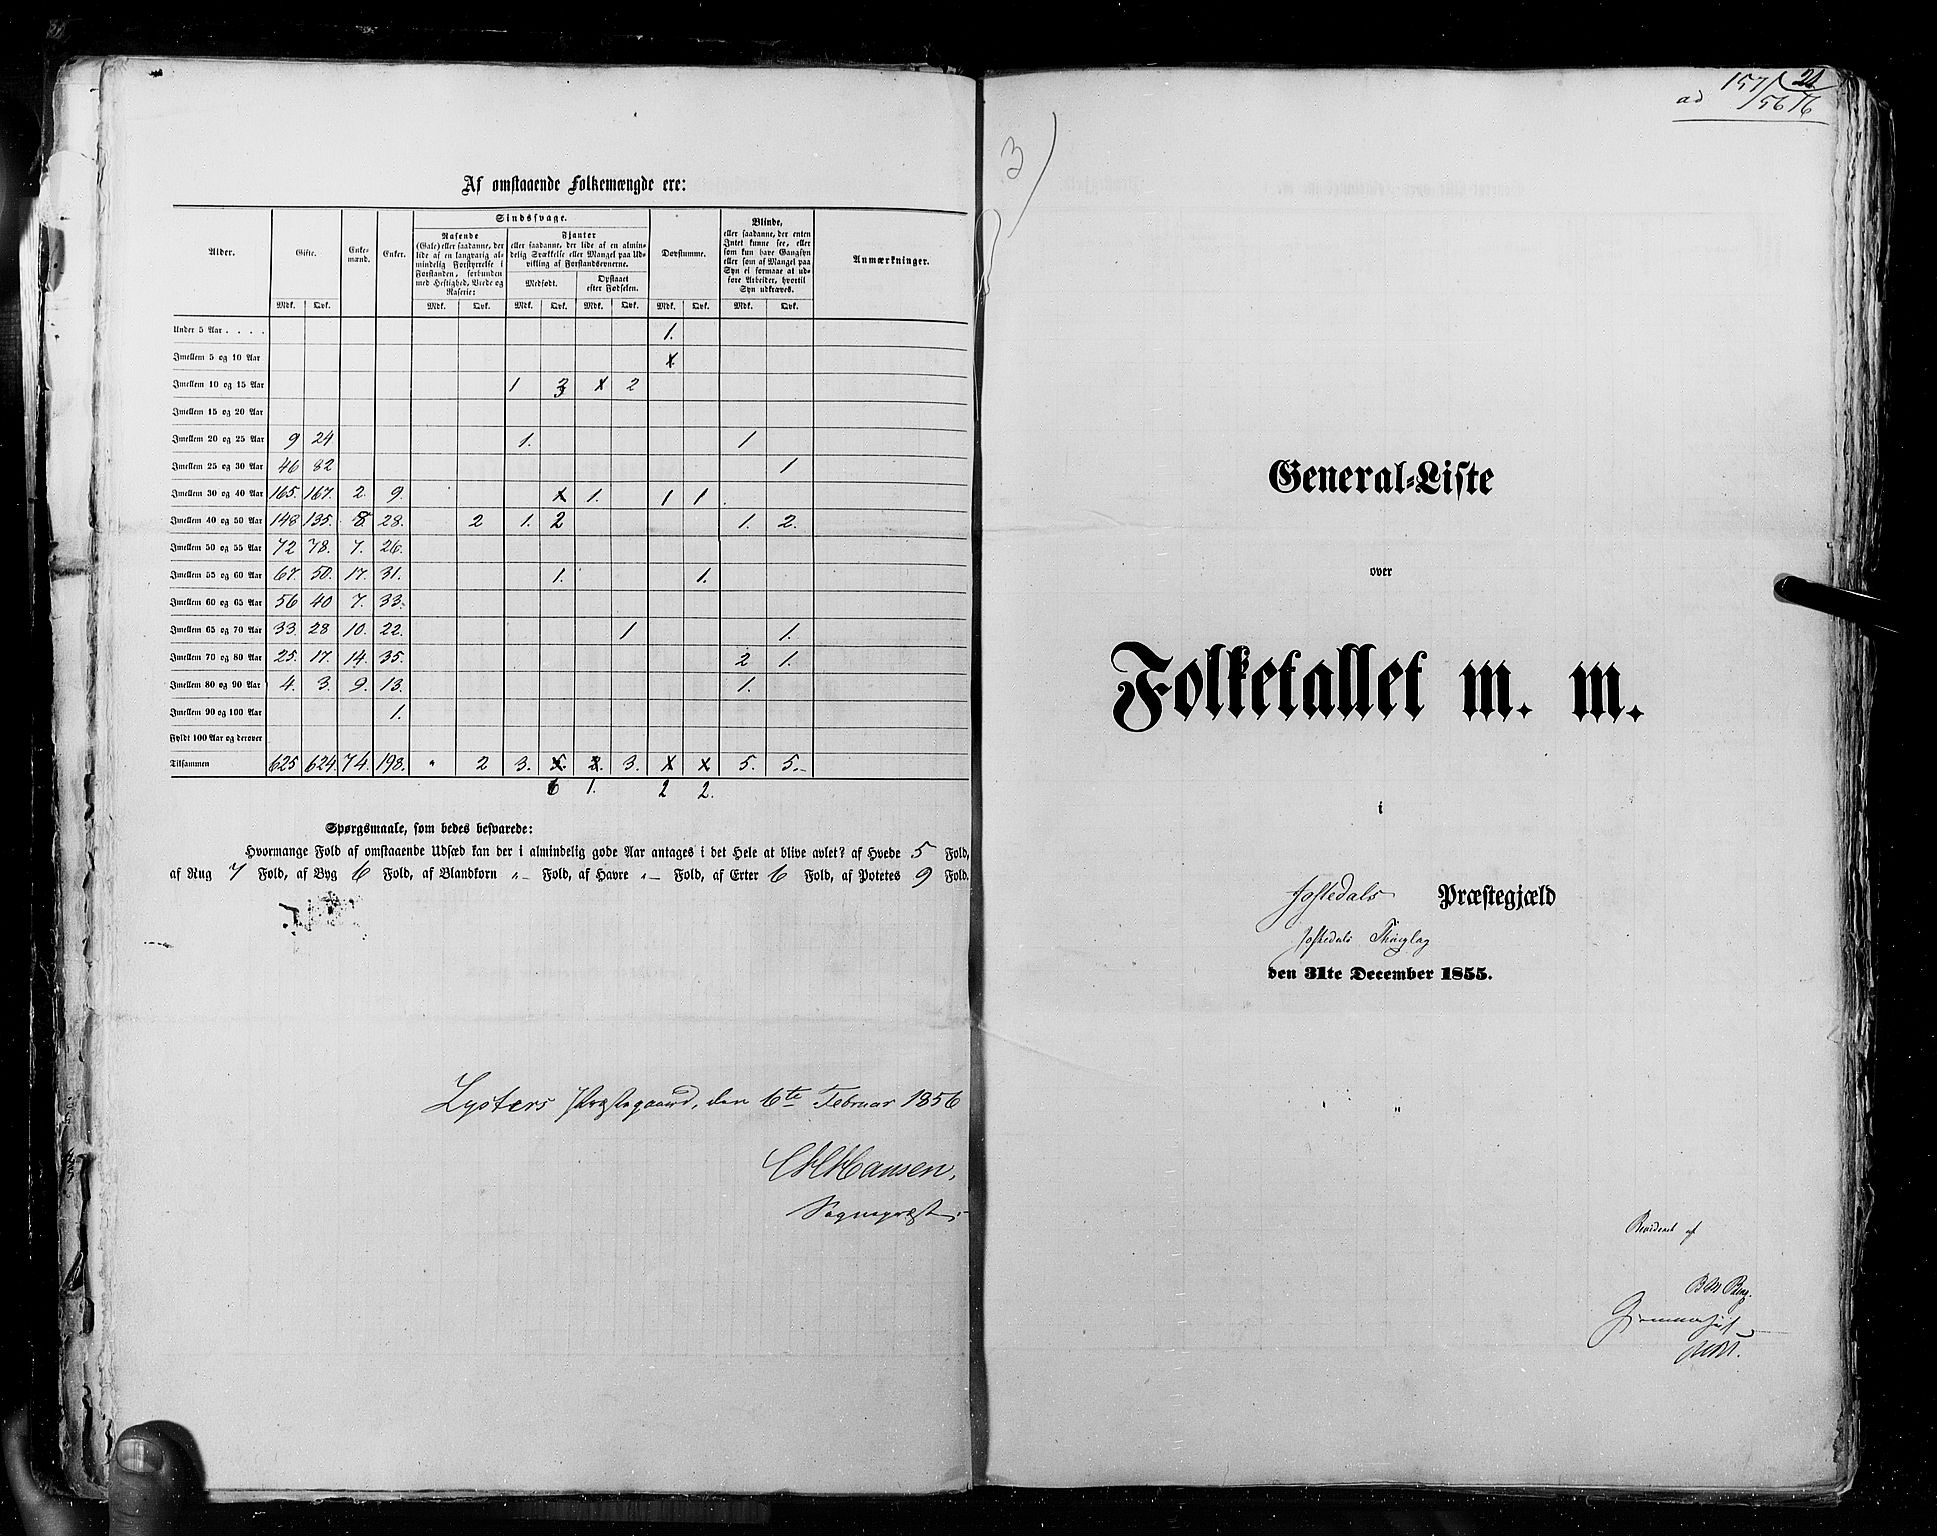 Af omstaaende Folkemængde ere:
Alder. Gifte. Enkemænd. Enker. Sindssvage. Døvstumme. Blinde, Anmærkninger.
Rasende (Gale) eller saadanne, der lide af en langvarig almindelig Forstyrrelse i Forstanden, forbunden med Heftighed, Vrede og Raserie:
Fjanter eller saadanne, der lide af en almindelig Svækkelse eller Mangel paa Udvikling af Forstandsevnerne.
Medfødt. Opstaaet efter Fødselen.
eller saadanne, der enten Intet kunne see, eller som kun have Gangsyn eller som af Mangel paa Syn ei formaae at udføre Arbeider, hvortil Syn udkræves.
Mdk. Qvk. Mdk. Qvk. Mdk. Qvk. Mdk. Qvk. Mdk. Qvk. Mdk. Qvk.
Under 5 Aar . . . . 1.
Imellem 5 og 10 Aar
Imellem 10 og 15 Aar 1 3 2
Imellem 15 og 20 Aar
Imellem 20 og 25 Aar 9 24 1. 1
Imellem 25 og 30 Aar 46 82 1
Imellem 30 og 40 Aar 165. 167. 2. 9. 1. 1 1
Imellem 40 og 50 Aar 148 135. 8 28. 2 1. 2 1. 2.
Imellem 50 og 55 Aar 72 78. 7. 26.
Imellem 55 og 60 Aar 67. 50. 17. 31. 1. 1.
Imellem 60 og 65 Aar 56 40 7. 33.
Imellem 65 og 70 Aar 33. 28 10. 22. 1 1.
Imellem 70 og 80 Aar 25. 17. 14. 35. 2 1.
Imellem 80 og 90 Aar 4. 3. 9. 13. 1.
Imellem 90 og 100 Aar 1.
Fyldt 100 Aar og derover
Tilsammen 625 624. 74. 198. " 2 3. 5. 2. 3. 5. 5.
6 1. 2 2.
Spørgsmaale, som bedes besvarede:
Hvormange Fold af omstaaende Udsæd kan der i almindelig gode Aar antages i det Hele at blive avlet? af Hvede 5 Fold,
af Rug 7 Fold, af Byg 6 Fold, af Blandkorn "– Fold, af Havre "– Fold, af Erter 6 Fold, af Potetes 9 Fold.
Lysters Præstegaard, den 6te Februar 1856
Hansen,
Sognepræst
ad 157/56
21
3
General-Liste
over
Folketallet m. m.
i
Jostedals Præstegjæld
Jostedals Thinglag
den 31te December 1855.
Revideret af